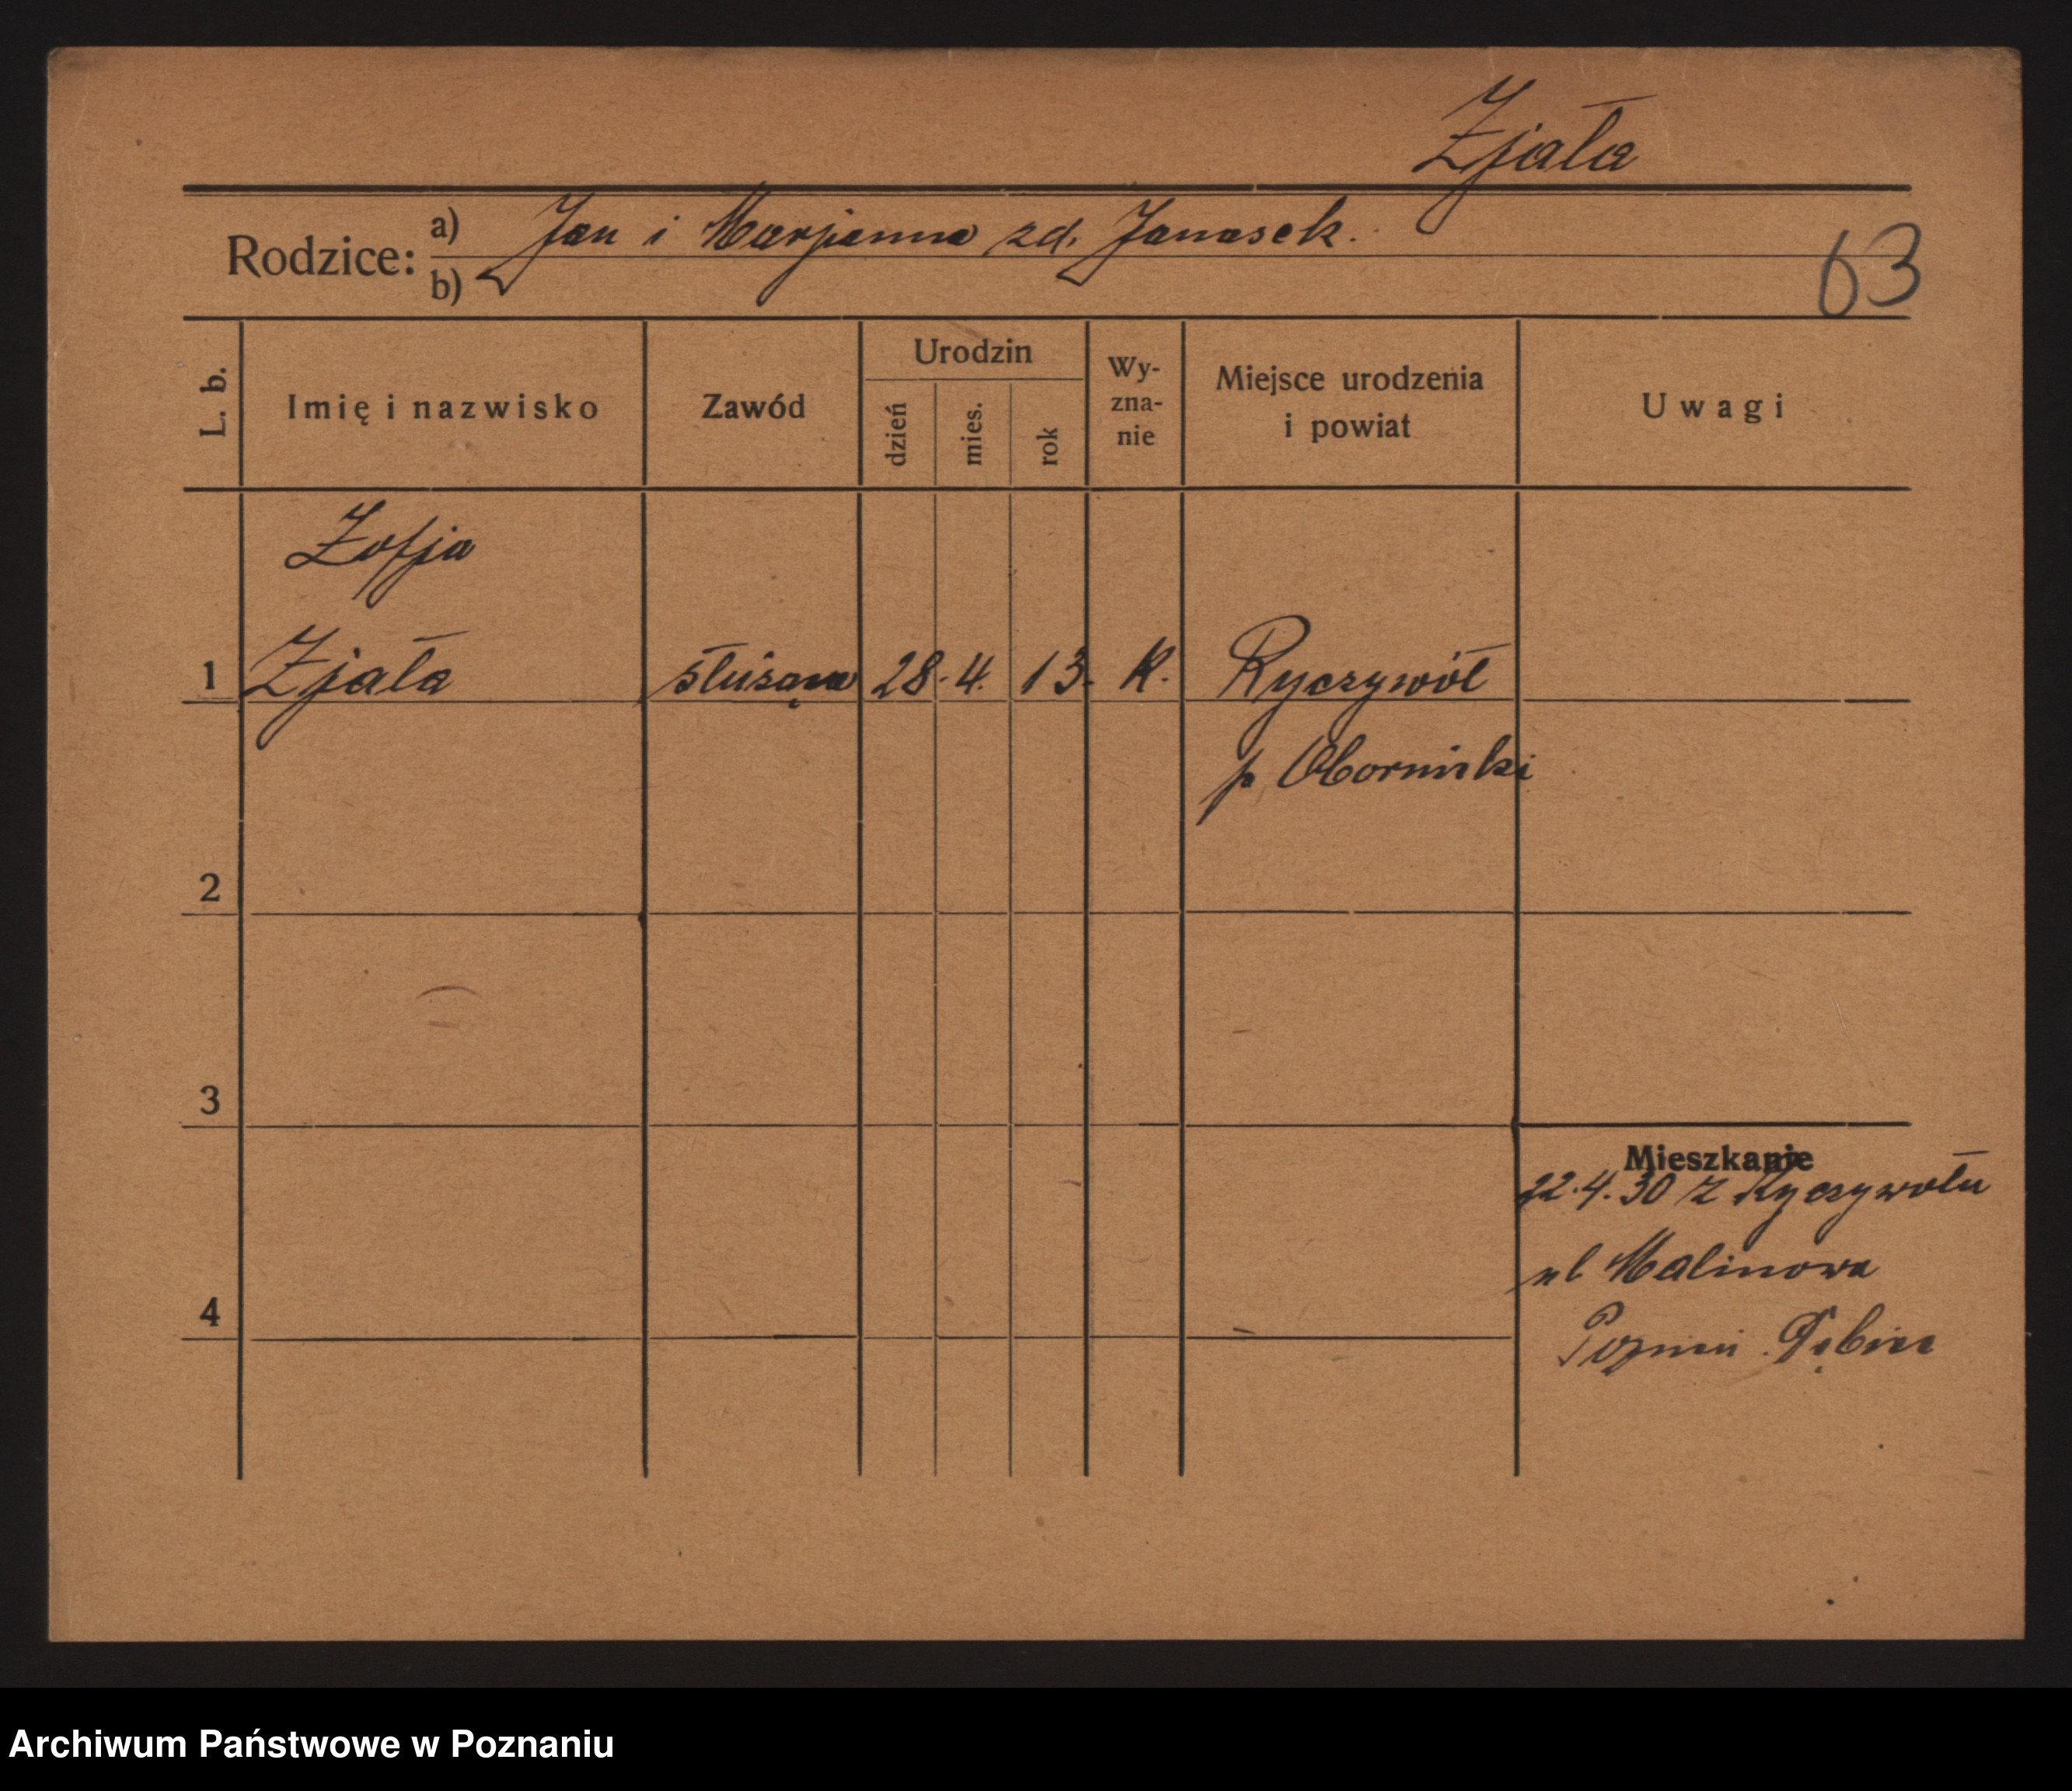 Zjała
Rodzice: a) Jan i Marjanna zd. Janasek.
b)
63
L. b. Imię i nazwisko Zawód Urodzin dzień mies. rok Wy-zna-nie Miejsce urodzenia i powiat Uwagi
Zofja
1 Zjała służąca 28. 4. 13. K. Ryczywół
p. Obornicki
2
3
Mieszkanie
22.4.30 z Ryczywołu
ul Malinowa
4
Poznań. Dębiec
Archiwum Państwowe w Poznaniu